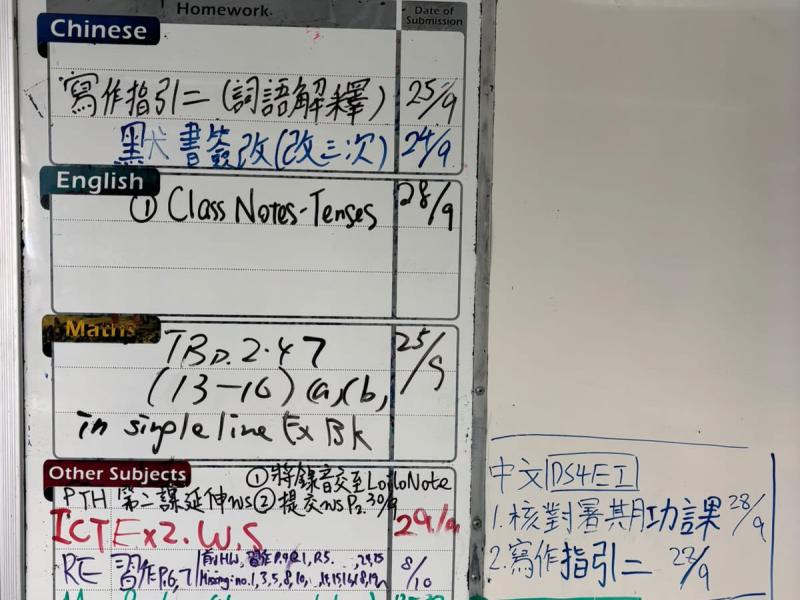 Homework
Date of Submission
Chinese
寫作指引二(詞語解釋) 25/9
默書簽改(改三次) 24/9
English
① Class Notes-Tenses 28/9
Maths
2.47 25/9
(13-16)
in single line Ex Bk
Other Subjects
① 將錄音交至LoiloNote
PTH 第二課延伸WS ② 提交WS P2 30/9
ICT Ex2. W.S 29/9
RE 習作P.6,7 8/10
中文 DS4E1
1. 核對暑期功課 28/9
2. 寫作指引二